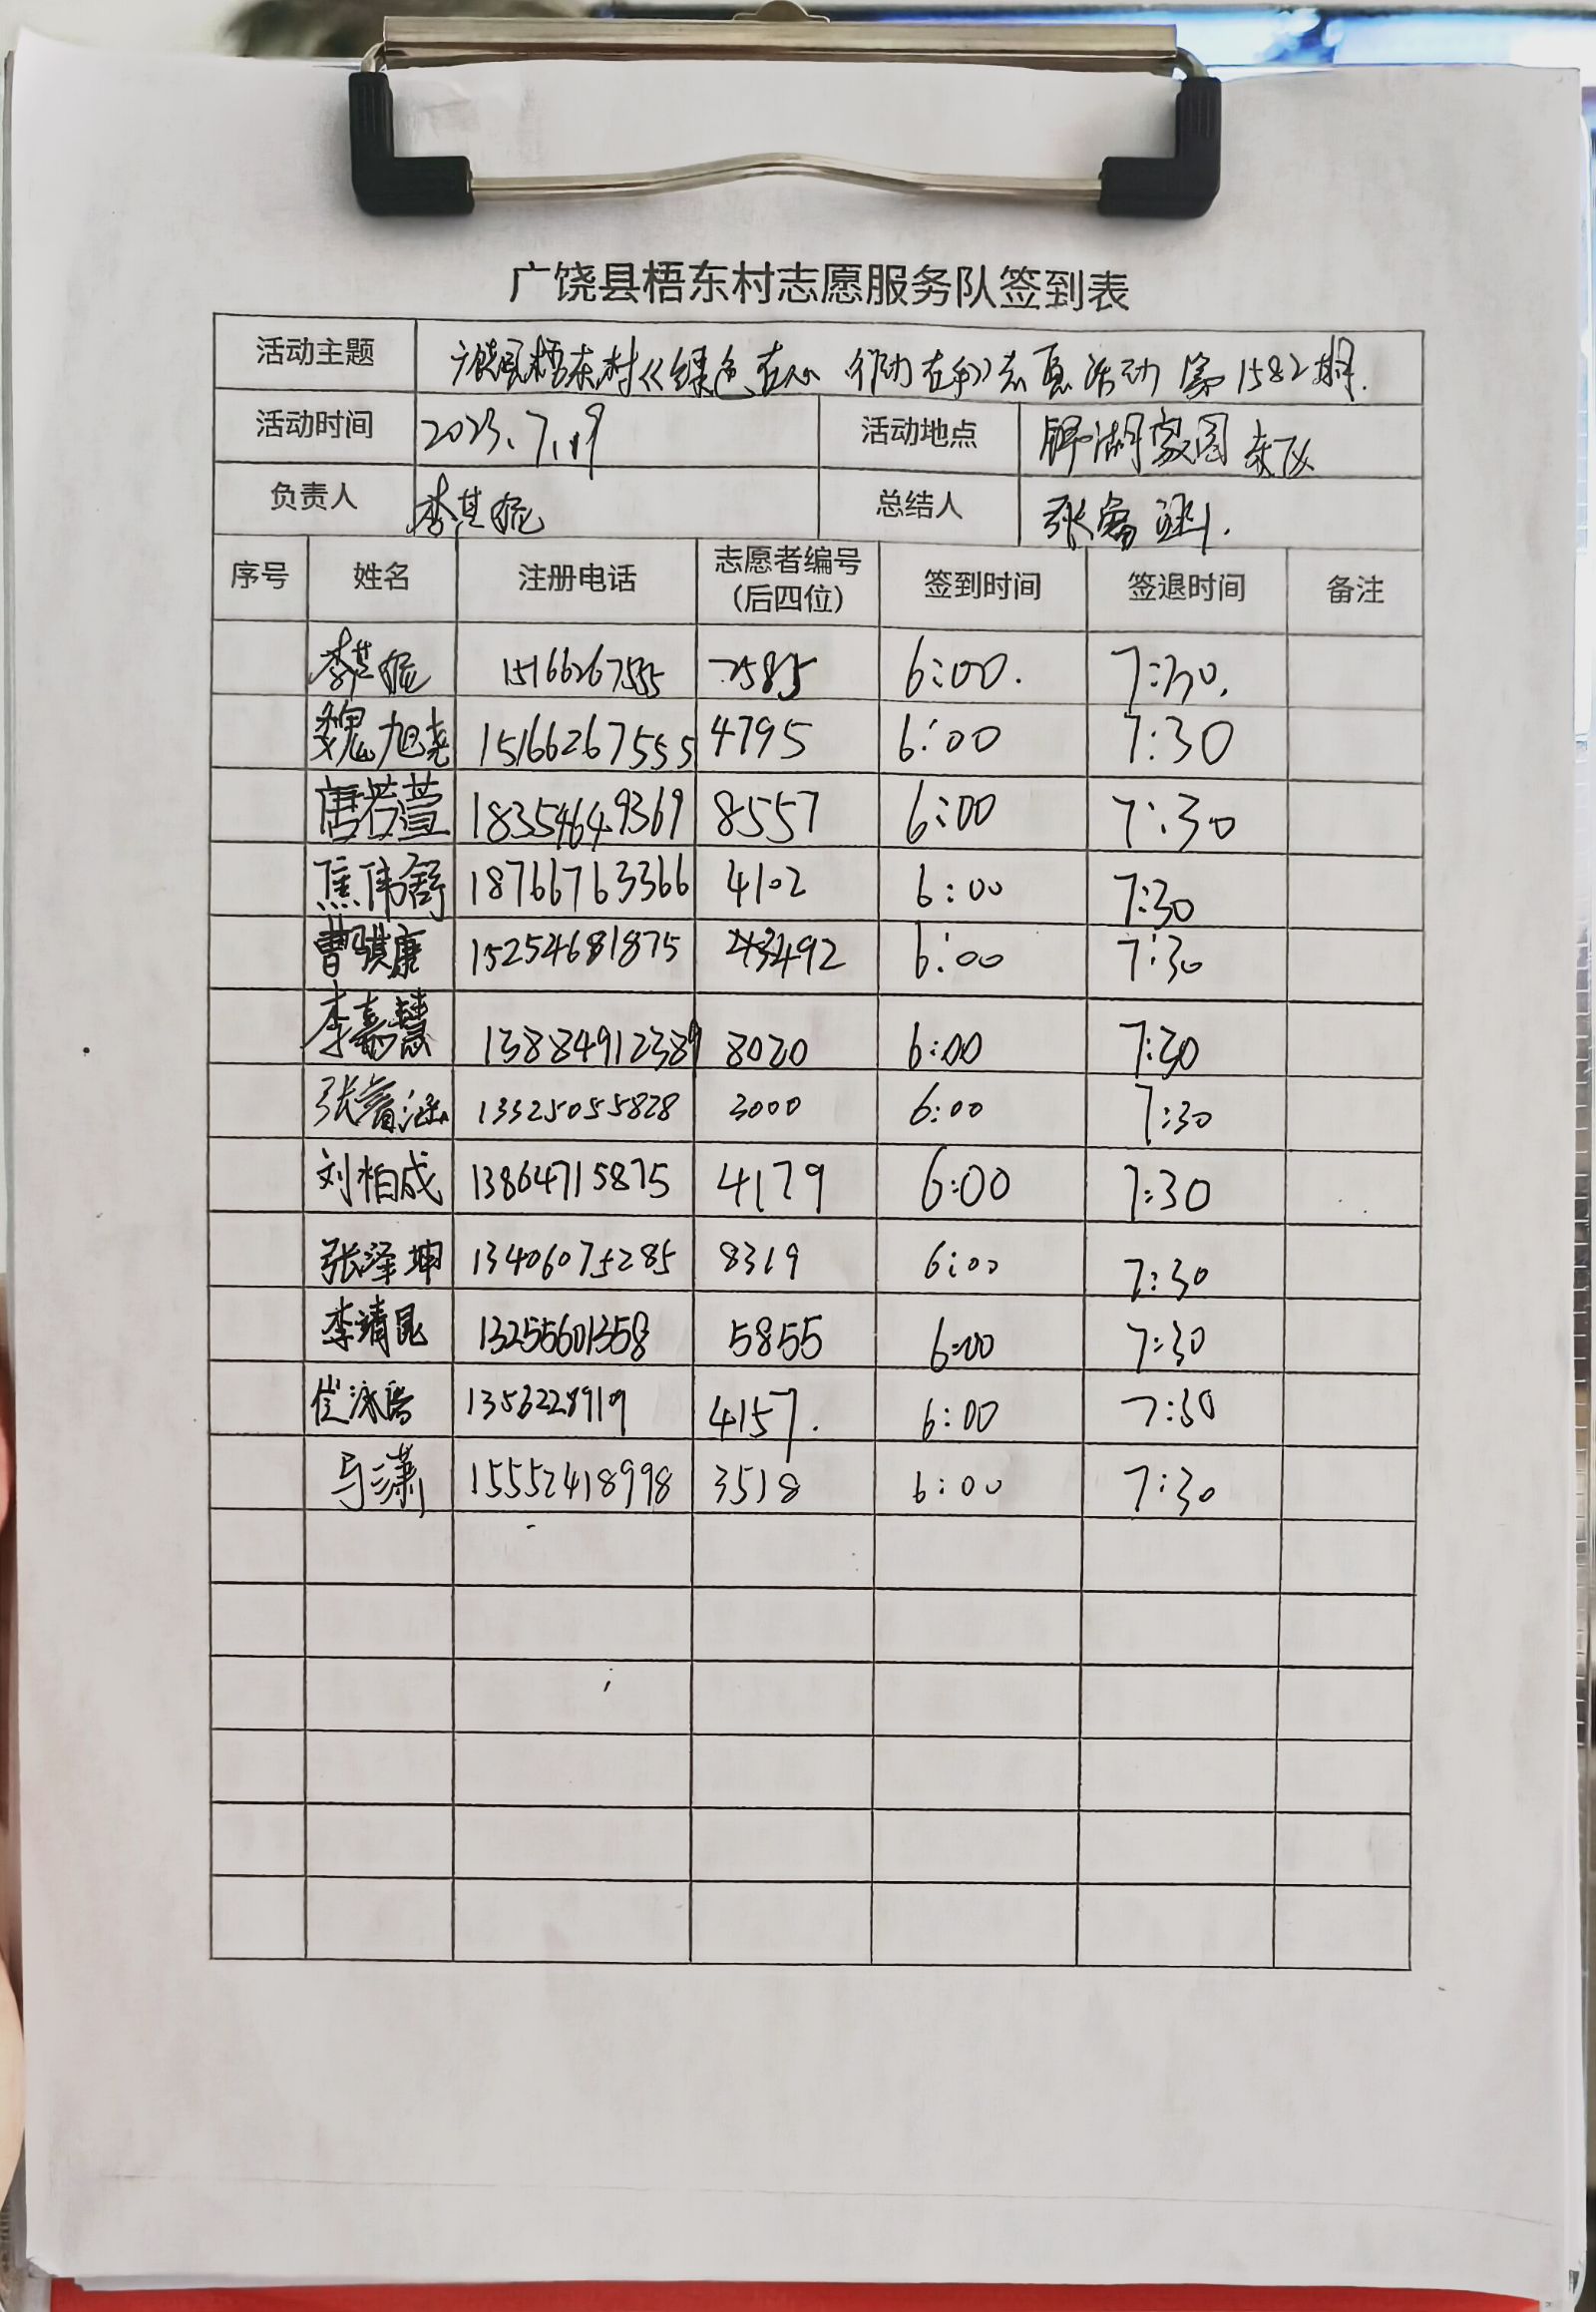 广饶县梧东村志愿服务队签到表
活动主题 广饶县梧东村《绿色在心 行动在手》志愿活动 第1582期.
活动时间 2023.7.19 活动地点 锦湖家园东区
负责人 李其 总结人 张睿涵.
序号 姓名 注册电话 志愿者编号 签到时间 签退时间 备注
（后四位）
李其 15166267555 2585 6:00. 7:30.
魏旭尧 15166267555 4795 6:00 7:30
唐若萱 18354649369 8557 6:00 7:30
焦伟舒 18766763366 4102 6:00 7:30
曹骐康 15254681875 3492 6:00 7:30
李嘉慧 13884912389 8020 6:00 7:30
张睿涵 13325055828 3000 6:00 7:30
刘柏成 13864715875 4179 6:00 7:30
张泽坤 13406075285 8319 6:00 7:30
李靖昆 13255601358 5855 6:00 7:30
崔泳 1356228919 4157. 6:00 7:30
马潇 15552418998 3518 6:00 7:30